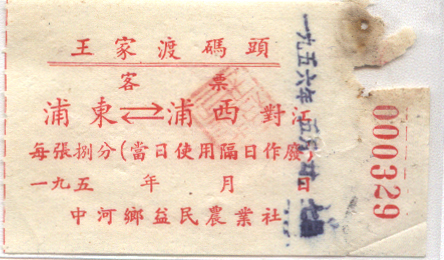 王家渡碼頭
客票
浦東⇄浦西對江
每張捌分(當日使用隔日作廢)
一九五 年 月 日
中河鄉益民農業社
一九五六年
000329